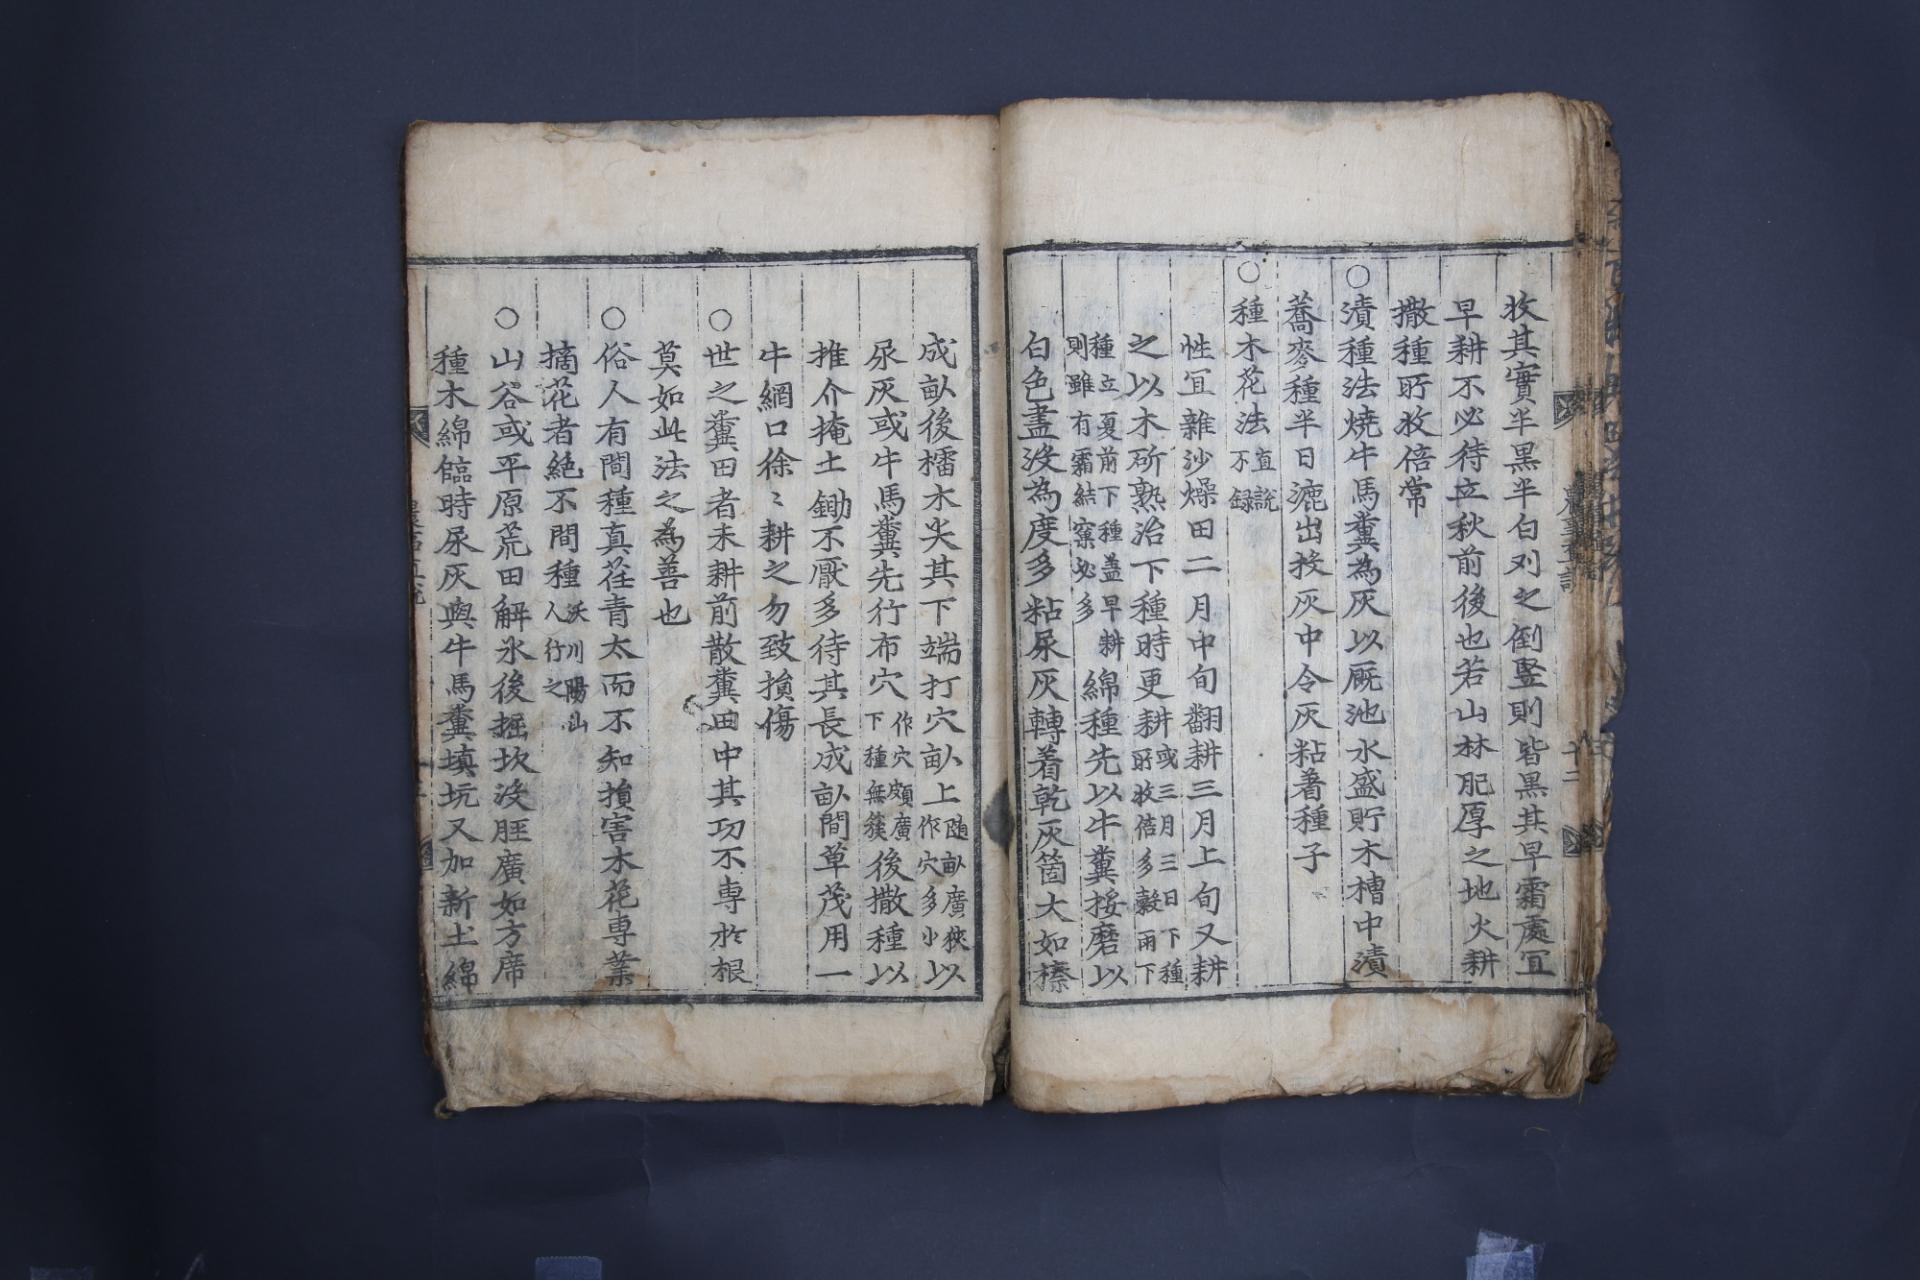 收其實半黒半白刈之倒竪則皆黒其早霜處冝
早耕不必待立秋前後也若山林肥厚之地火耕
撒種所收倍常
○漬種法燒牛馬糞為灰以厩池水盛貯木槽中漬
蕎麥種半日漉出投灰中令灰粘著種子
○種木花法直說不録
性冝雜沙燥田二月中旬翻耕三月上旬又耕
之以木斫熟治下種時更耕或三月三日下種所收倍多穀雨下
種立夏前下種盖早耕則雖有霜結窠必多綿種先以牛糞挼磨以
白色盡沒為度多粘尿灰轉着乾灰箇大如榛
成畝後檑木尖其下端打穴畝上随畝廣狹作穴多小以
尿灰或牛馬糞先行布穴作穴頗廣下種無簇後撒種以
推介掩土鋤不厭多待其長成畝間草茂用一
牛網口徐〻耕之勿致損傷
○世之糞田者未耕前散糞田中其功不専扵根
莫如此法之為善也
○俗人有間種真荏青太而不知損害木花専業
摘花者絶不間種沃川陽山人行之
○山谷或平原荒田解氷後掘坎沒脛廣如方席
種木綿臨時尿灰與牛馬糞填坑又加新土綿